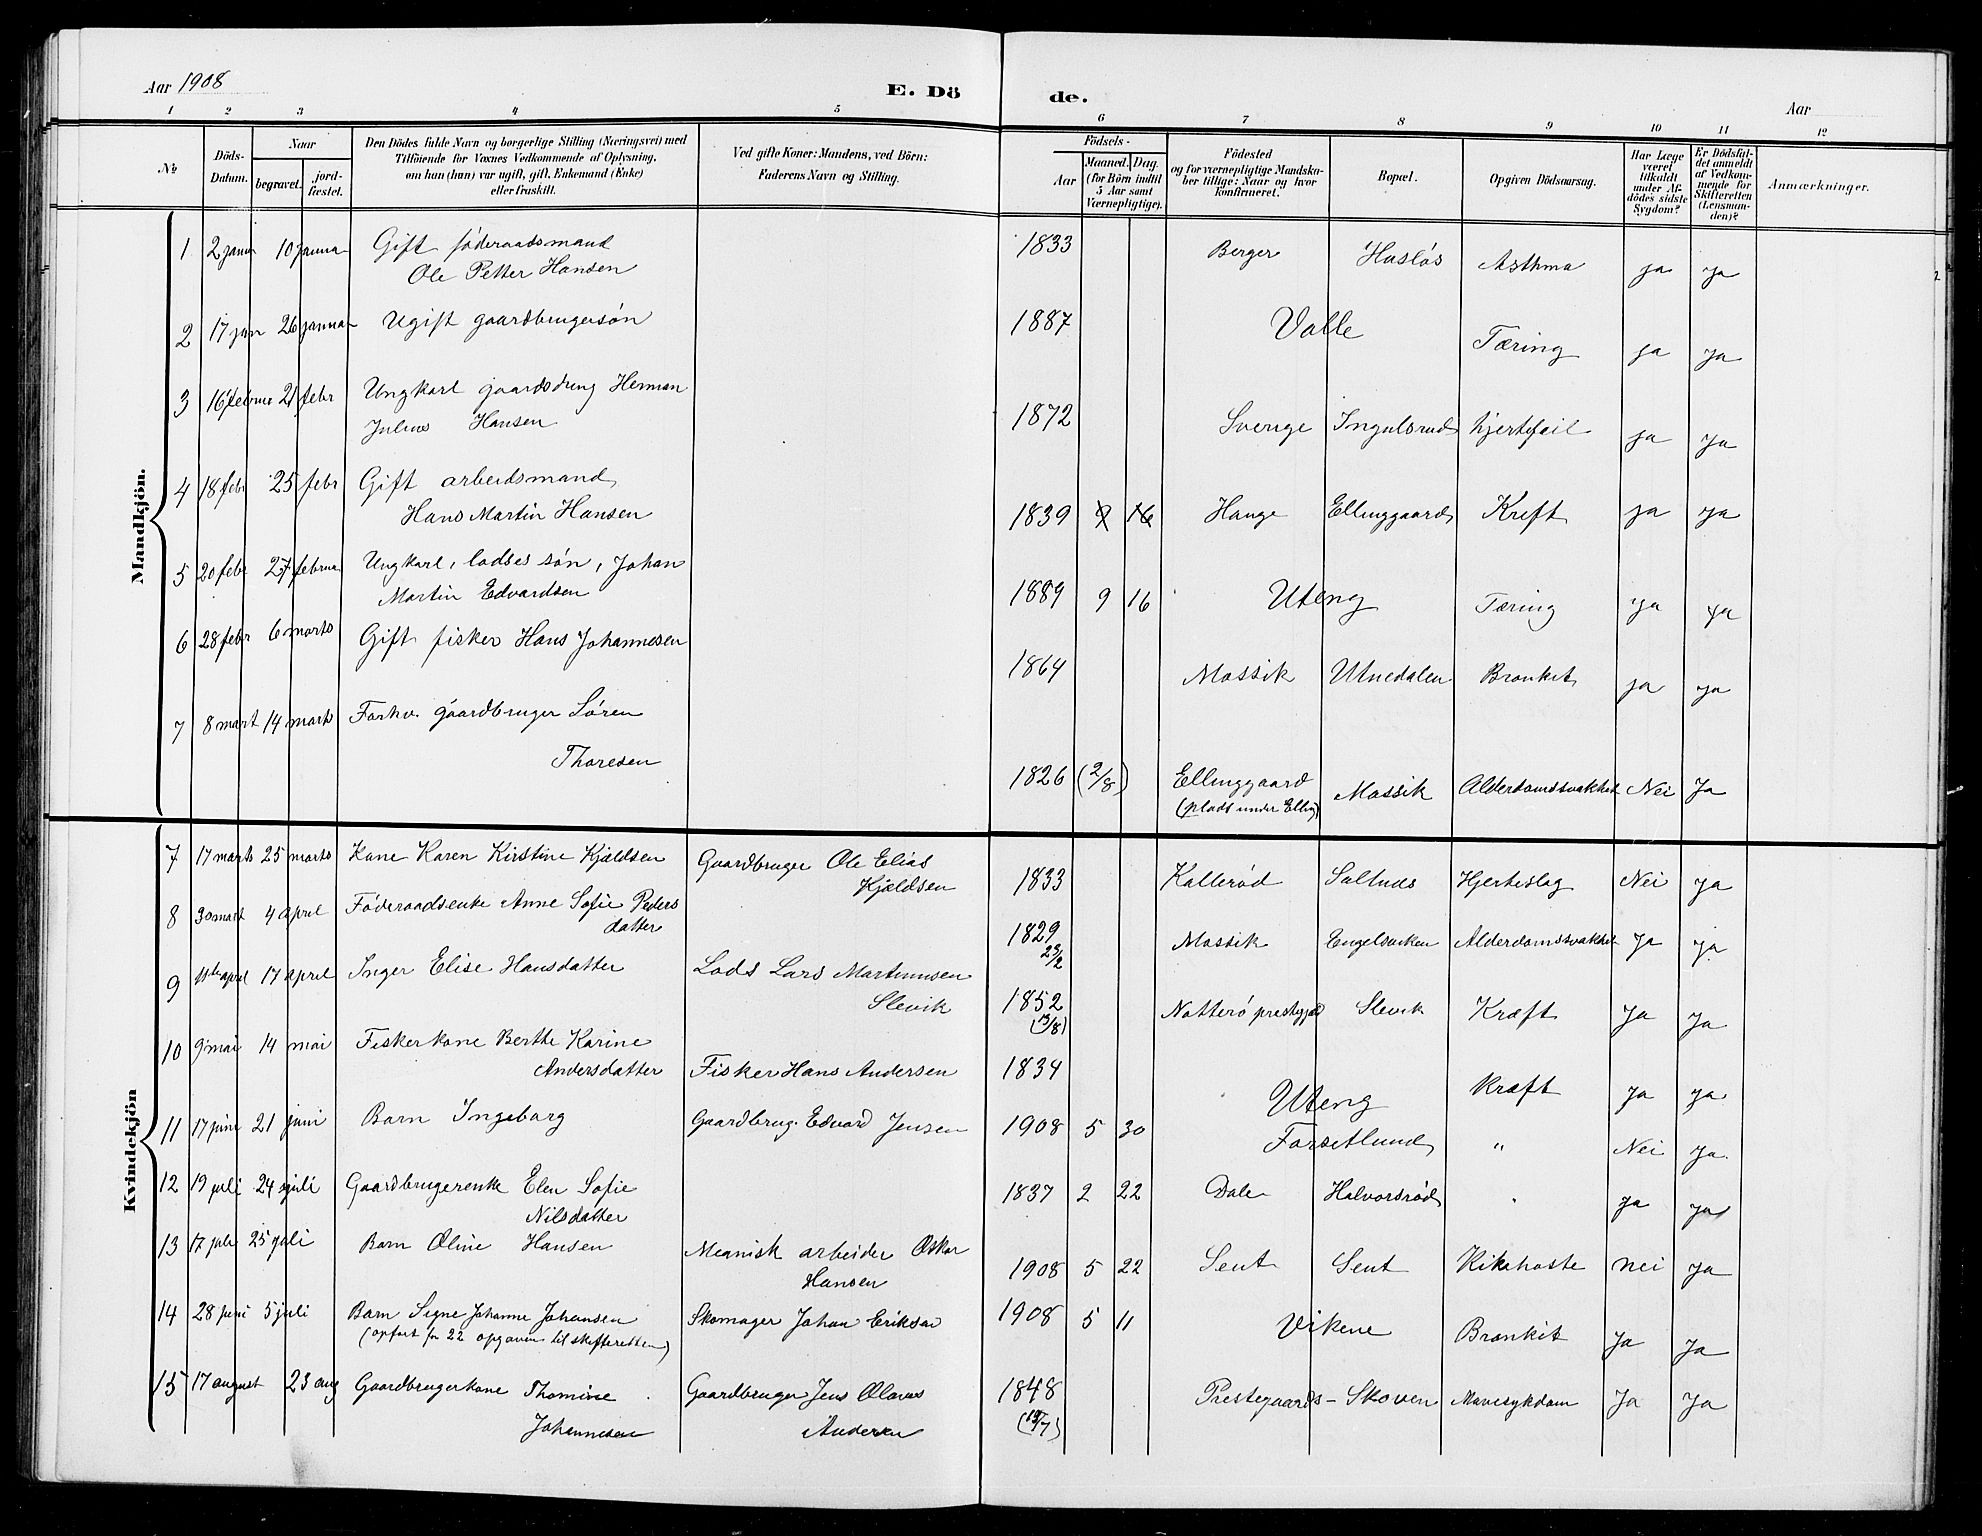 Aar 1908
E. Dö
de.
Aar
1 2 3 4 5 6 7 8 9 10 11 12
№
Döds-
Datum.
Naar
begravet.
jord-
fæstet.
Den Dödes fulde Navn og borgerlige Stilling (Næringsvei) med
Tilföiende for Voxnes Vedkommende af Oplysning,
om han (hun) var ugift, gift, Enkemand (Enke)
eller fraskilt.
Ved gifte Koner: Mandens, ved Börn:
Faderens Navn og Stilling.
Födsels-
Aar
Maaned. Dag.
(for Börn indtil
5 Aar samt
Værnepligtige).
Födested
og for værnepligtige Mandska-
ber tillige: Naar og hvor
konfirmeret.
Bopæl.
Opgiven Dödsaarsag.
Har Læge
været
tilkaldt
under Af-
dödes sidste
Sygdom?
Er Dödsfal-
det anmeldt
af Vedkom-
mende for
Skifteretten
(Lensman-
den)?
Anmærkninger.
Mandkjön.
1 2 janu 10 janua Gift föderaadsmand
Ole Petter Hansen
1833 Berger Hasløs Asthma ja ja
2 17 jan 26 januar Ugift gaardbrugersøn
1887 Valle Tæring ja ja
3 16 februar 21 febr Ungkarl gaardsdreng Herman
Julius Hansen
1872 Sverige Ingulsrud hjertefeil ja ja
4 18 febr 25 febr Gift arbeidsmand
Hans Martin Hansen
1839 9 16 Hauge Ellinggaard Kreft ja ja
5 20 febr 27 februa Ungkarl, lodses søn, Johan
Martin Edvardsen
1889 9 16 Uteng Tæring Ja ja
6 28 febr 6 marts Gift fisker Hans Johannesen
1864 Mossik Utnedalen Bronkit ja ja
7 8 mart 14 marts Forhv. gaardbruger Søren
Thoresen
1826 (2/8) Ellinggaard
(plads under Elling) Mossik Alderdomssvakhet Nei Ja
Kvindekjön
7 17 marts 25 marts Kone Karen Kirstine Kjældsen Gaardbruger Ole Elias
Kjældsen
1833 Kallerød Saltnes Hjerteslag Nei ja
8 30 mart 4 april Föderaadsenke Anne Sofie Peders
datter
1829
23/2 Mossik Engelsviken Alderdomssvakhet Ja ja
9 11te april 17 april Inger Elise Hansdatter Lods Lars Martinusen
Slevik
1852
(13/8) Nøtterø prestegjeld Slevik Kræft Ja Ja
10 9 mai 14 mai Fiskerkone Berthe Karine
Andersdatter Fisker Hans Andersen
1834 Uteng Kræft Ja Ja
11 17 juni 21 juni Barn Ingeborg Gaardbrug. Edvard Jensen
1908 5 30 Forsetlund " Nei Ja
12 19 juli 24 juli Gaardbrugerenke Elen Sofie
Nilsdatter
1837 2 22 Dale Halvorsrød " Ja Ja
13 17 juli 25 juli Barn Oline Hansen Meanisk arbeider Oskar
Hansen
1908 5 22 Sent Sent Kikhoste Nei Ja
14 28 juni 5 juli Barn Signe Johanne Johansen Skomager Johan Eriksen
(opført for 22 opgaven til skifteretten)
1908 5 11 Vikene Bronkit Ja Ja
15 17 august 23 aug Gaardbrugerkone Thomine Gaardbruger Jens Olaus
Johannesen Andersen
1848
(13/7) Prestegaards-Skoven Mavesykdom Ja Ja